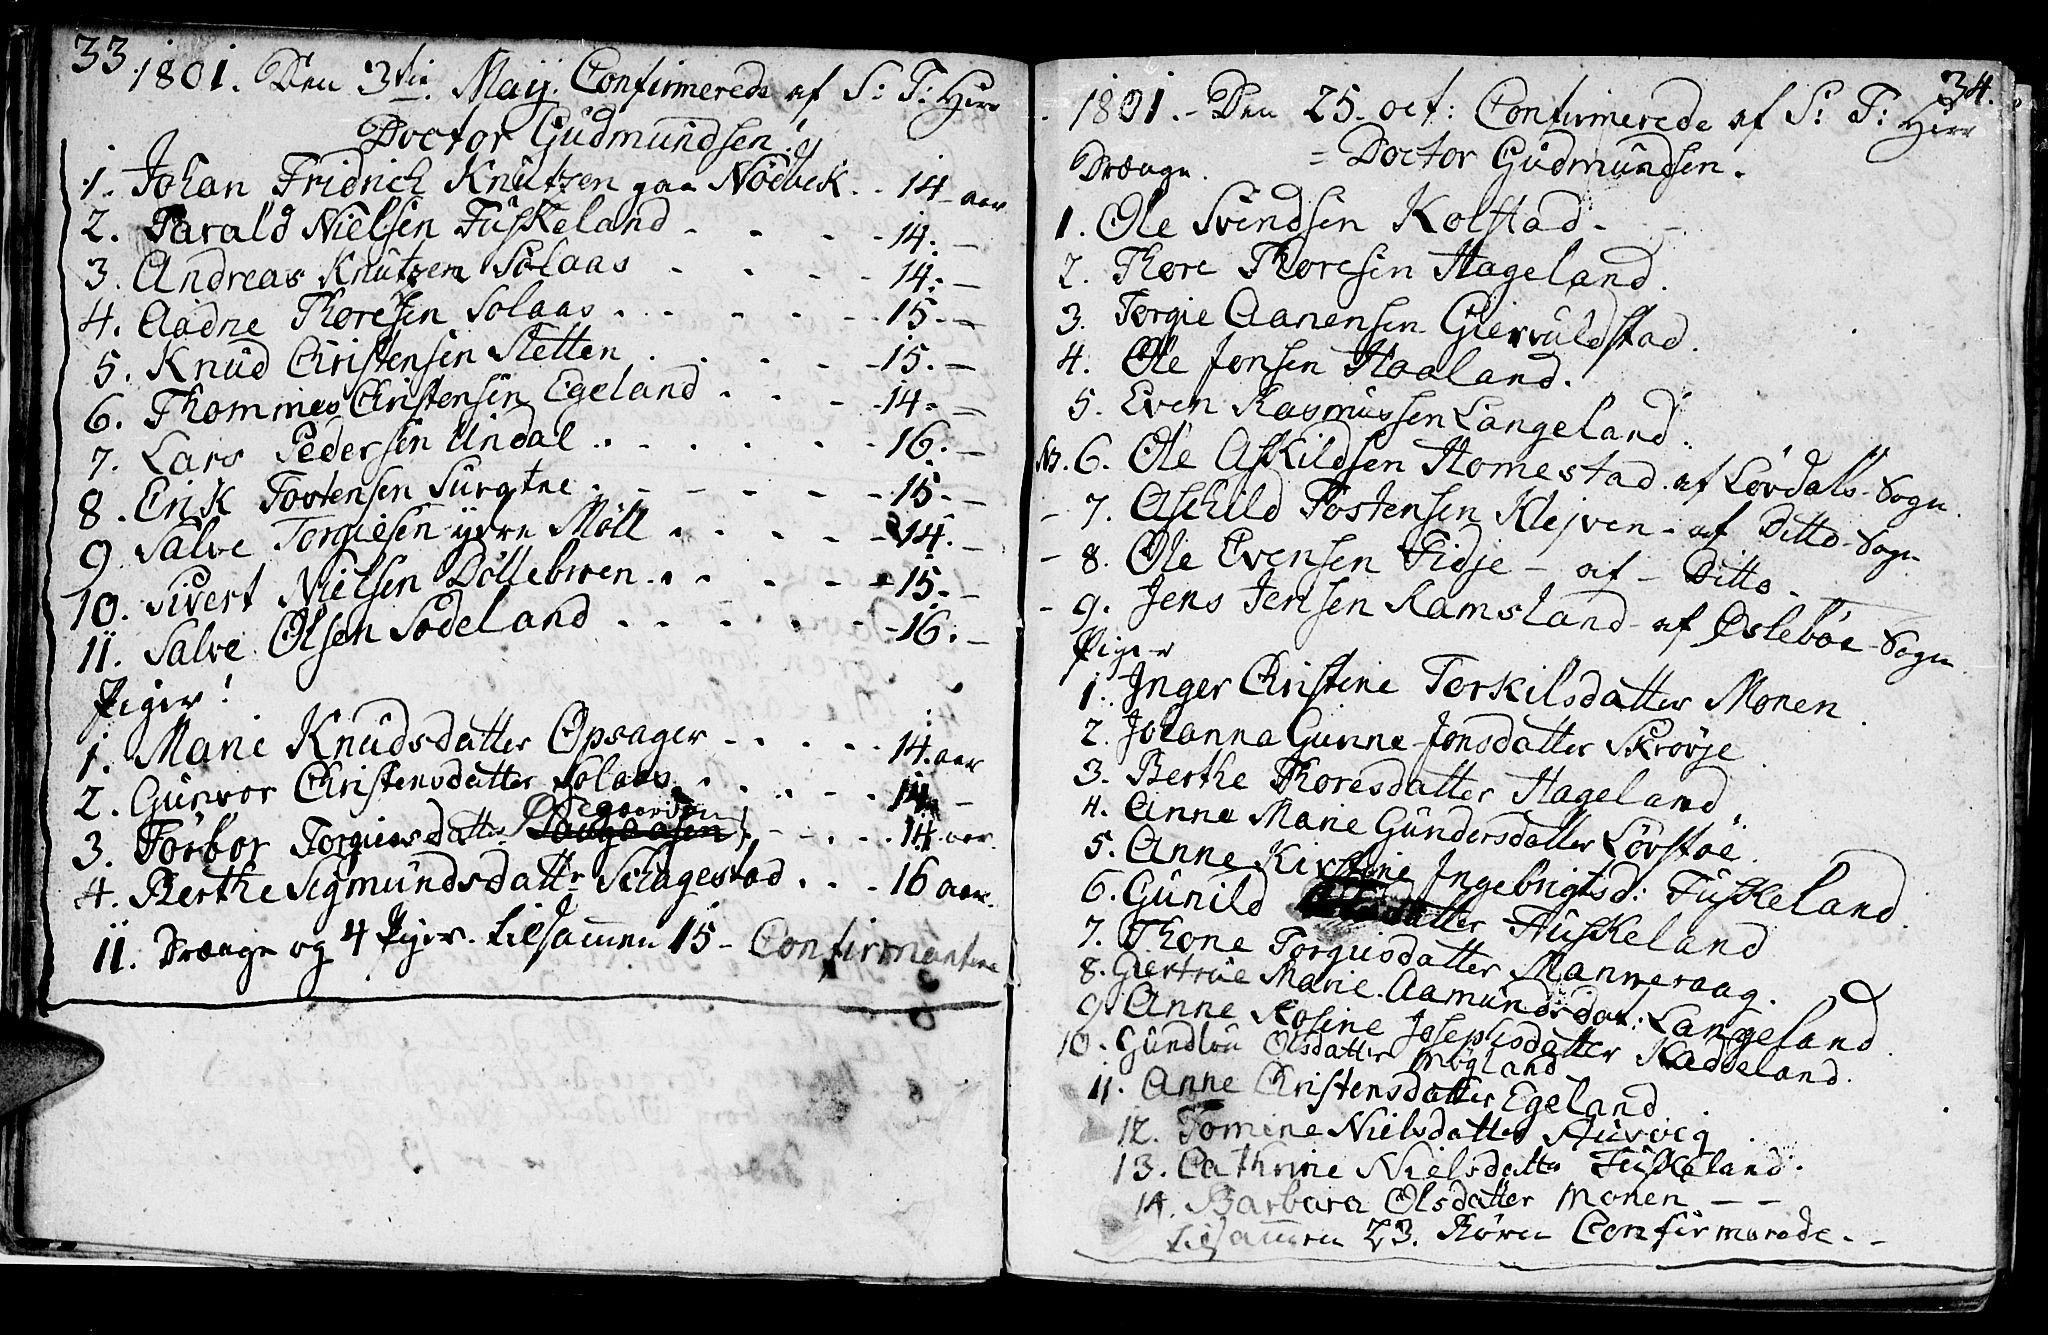 33
1801. Den 3die Maij. Confirmerede af S: T: Herr
Doctor Gudmundsen!
1. Johan Fridrich Knutzen paa Nödbek . . 14 aar
2. Tarald Nielsen Fuskeland - - - - 14. -
3. Andreas Knutzen Solaas . - - - 14. -
4. Aadne Thoresen Solaas . . - - - 15. -
5. Knud Christensen Sletten . . - - 15. -
6. Thommes Christensen Egeland . - - 14. -
7. Lars Pedersen Undal . . . . - - 16. -
8. Erik Tostensen - - - - - 15. -
9 Salve Torgiesen ydre Möll . . . - - 14. -
10. Sivert Nielsen Döllebroen . . - - - 15. -
11. Salve Olsen Södeland . . . . - - 16. -
Piger!
1. Marie Knudsdatter Opsager - . . . . 14. aar
2. Gunvor Christensdatter Solaas . . . - - 14. -
3. Torbor Torgiusdatter - . . . 14. aar.
4. Berthe Sigmundsdattr Skagestad . . . 16 aar.
11. Drænge og 4 Piger. tilsamen 15 - Confirmantere
34.
1801. - Den 25. oct: Confirmerede af S: T: Herr
= Doctor Gudmundsen.
Drænge.
1. Ole Svendsen Kolstad -
2. Thore Thoresen Hageland.
3. Torgie Aanensen Giervuldstad.
4. Ole Jonsen Haaland.
5. Even Rasmussen Langeland.
Nz. 6. Ole Askildsen Homestad af Lövdals Sogn.
- 7. Aschild Tostensen Klejven - af Ditto - Sogn
- 8. Ole Evensen Fidje - af - Ditto -
- 9. Jens Jensen Ramsland - af Øslebøe - Sogn
Piger
1. Inger Christine Torkilsdatter Monen.
2. Johanna Gunne Jonsdatter Skrövje
3. Berthe Thoresdatter Hageland
4. Anne Marie Gundersdatter Lövstöe.
5. Anne Kirstine Ingebrigtsd: Fuskeland.
6. Gunild datter Fuskeland
7. Thone Torguisdatter Manneraag.
8. Giertrue Marie Aamundsdat: Langeland
9. Anne Rosine Josephsdatter Kaddeland.
10. Gundlöu Olsdatter Mögland
11. Anne Christensdatter Egeland
12. Tomine Nielsdatter
13. Cathrine Nielsdattr Fuskeland.
14. Barbara Olsdatter Monen - -
tilsamen 23. Börn Confirmerede - -